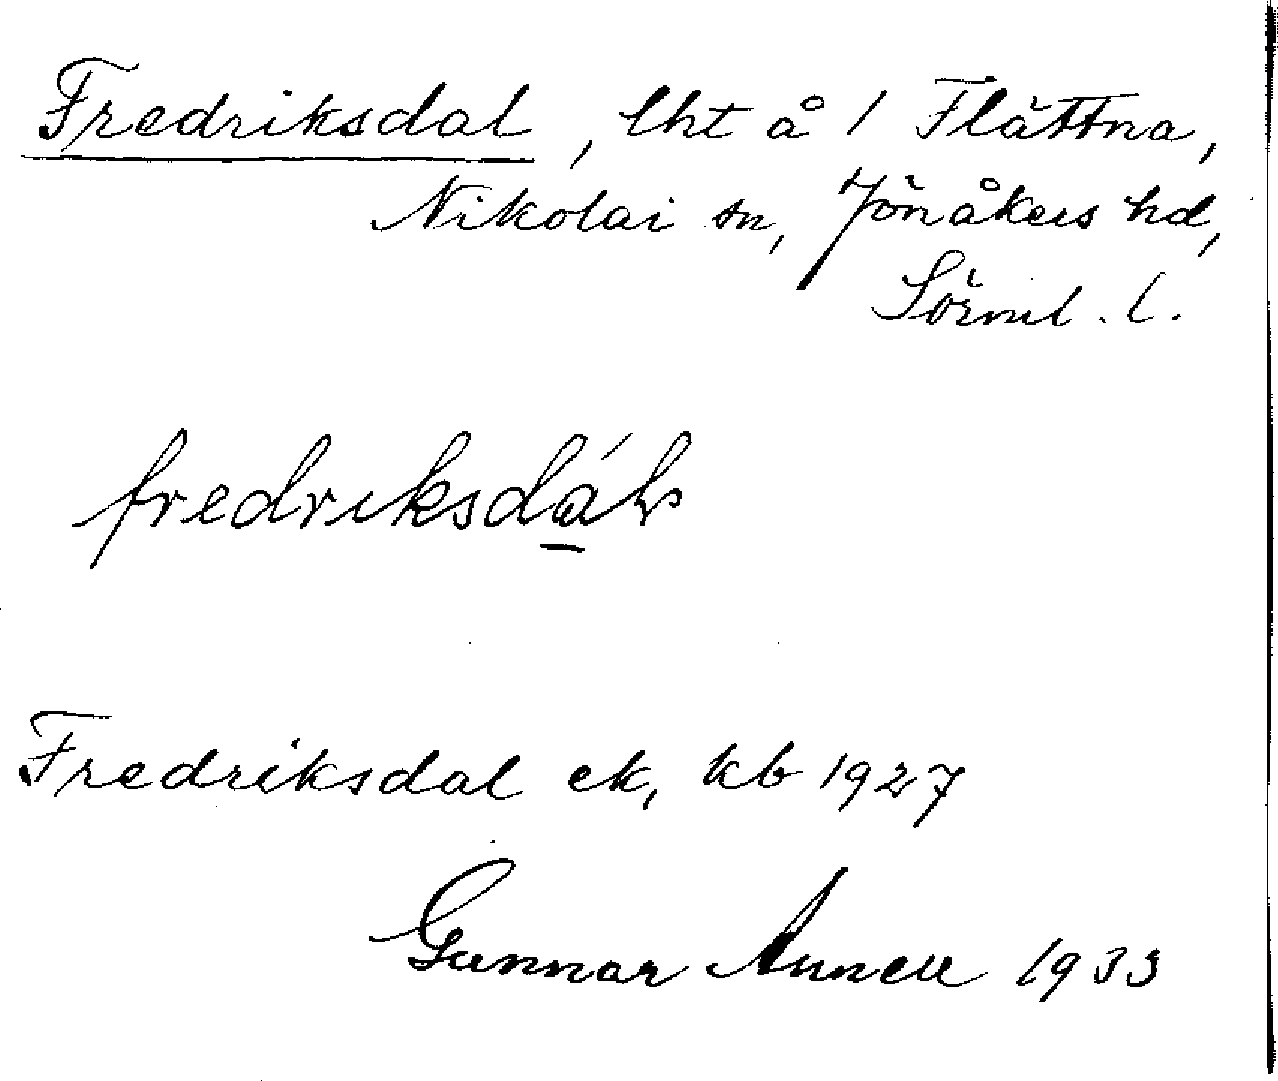 Fredriksdal, lht å 1 Flättna,
Nikolai sn, Jönåkers hd,
Sörml. l.
fredriksdá̱l
Fredriksdal ek, kb 1927
Gunnar Annell 1933